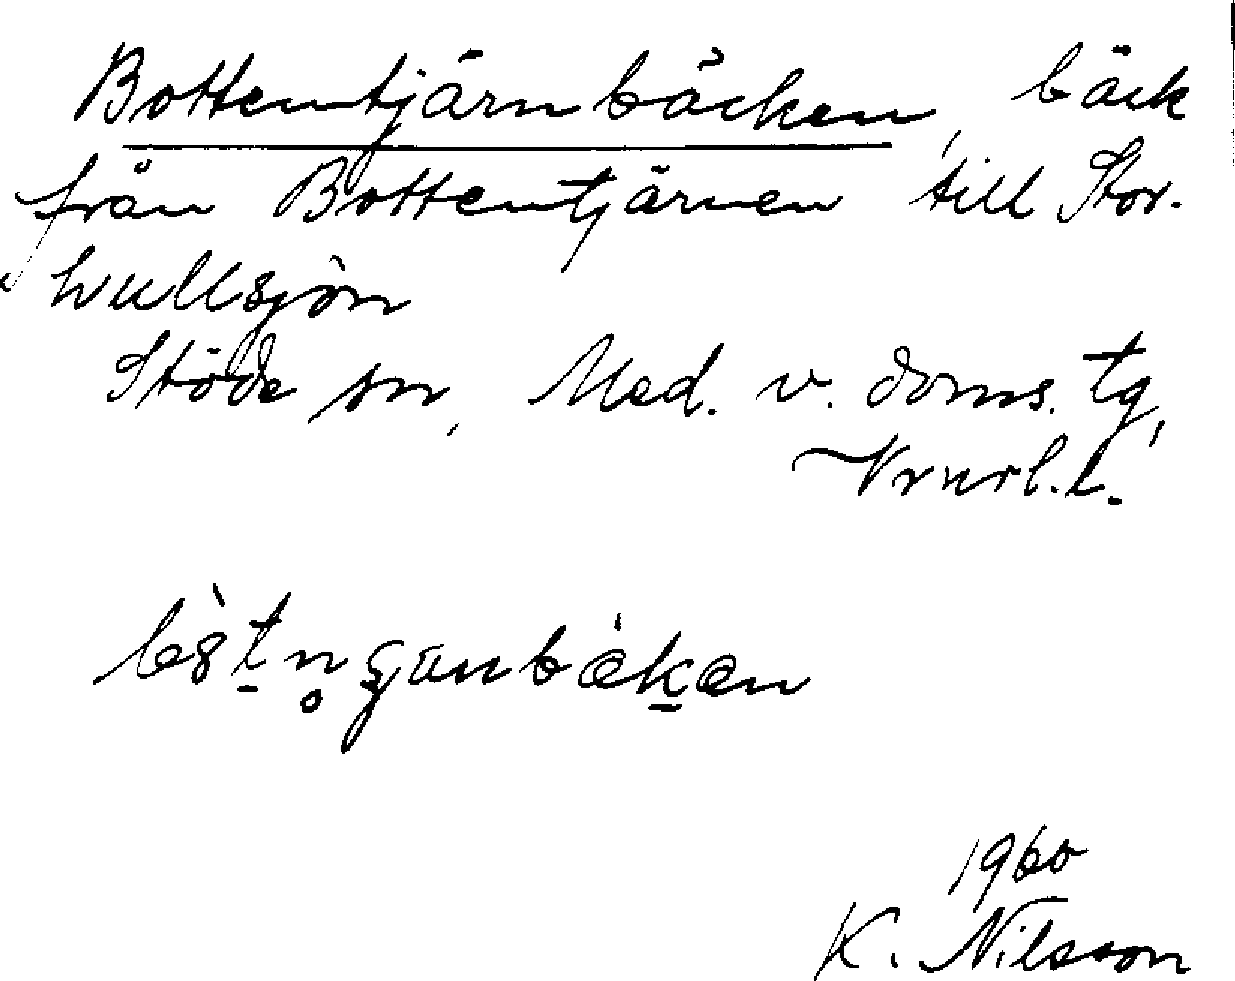 Bottentjärnbäcken, bäck
från Bottentjärnen till Stor-
hullsjön
Stöde sn, Med. v. doms. tg,
Vrnrl. l.
1960
K. Nilsson